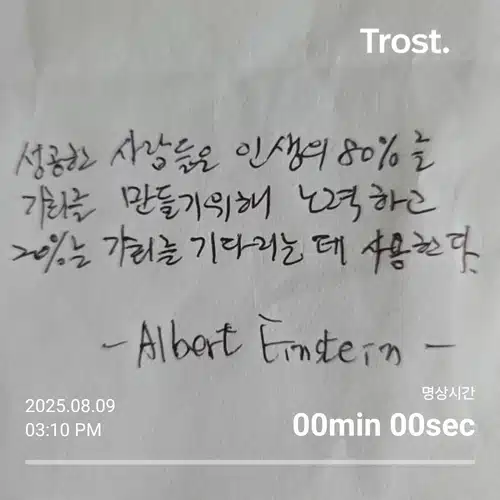 Trost.
성공한 사람들은 인생의 80%를
가치를 만들기위해 노력하고
20%는 가치를 기다리는 데 사용한다.
- Albert Einstein -
2025.08.09
03:10 PM
명상시간
00min 00sec